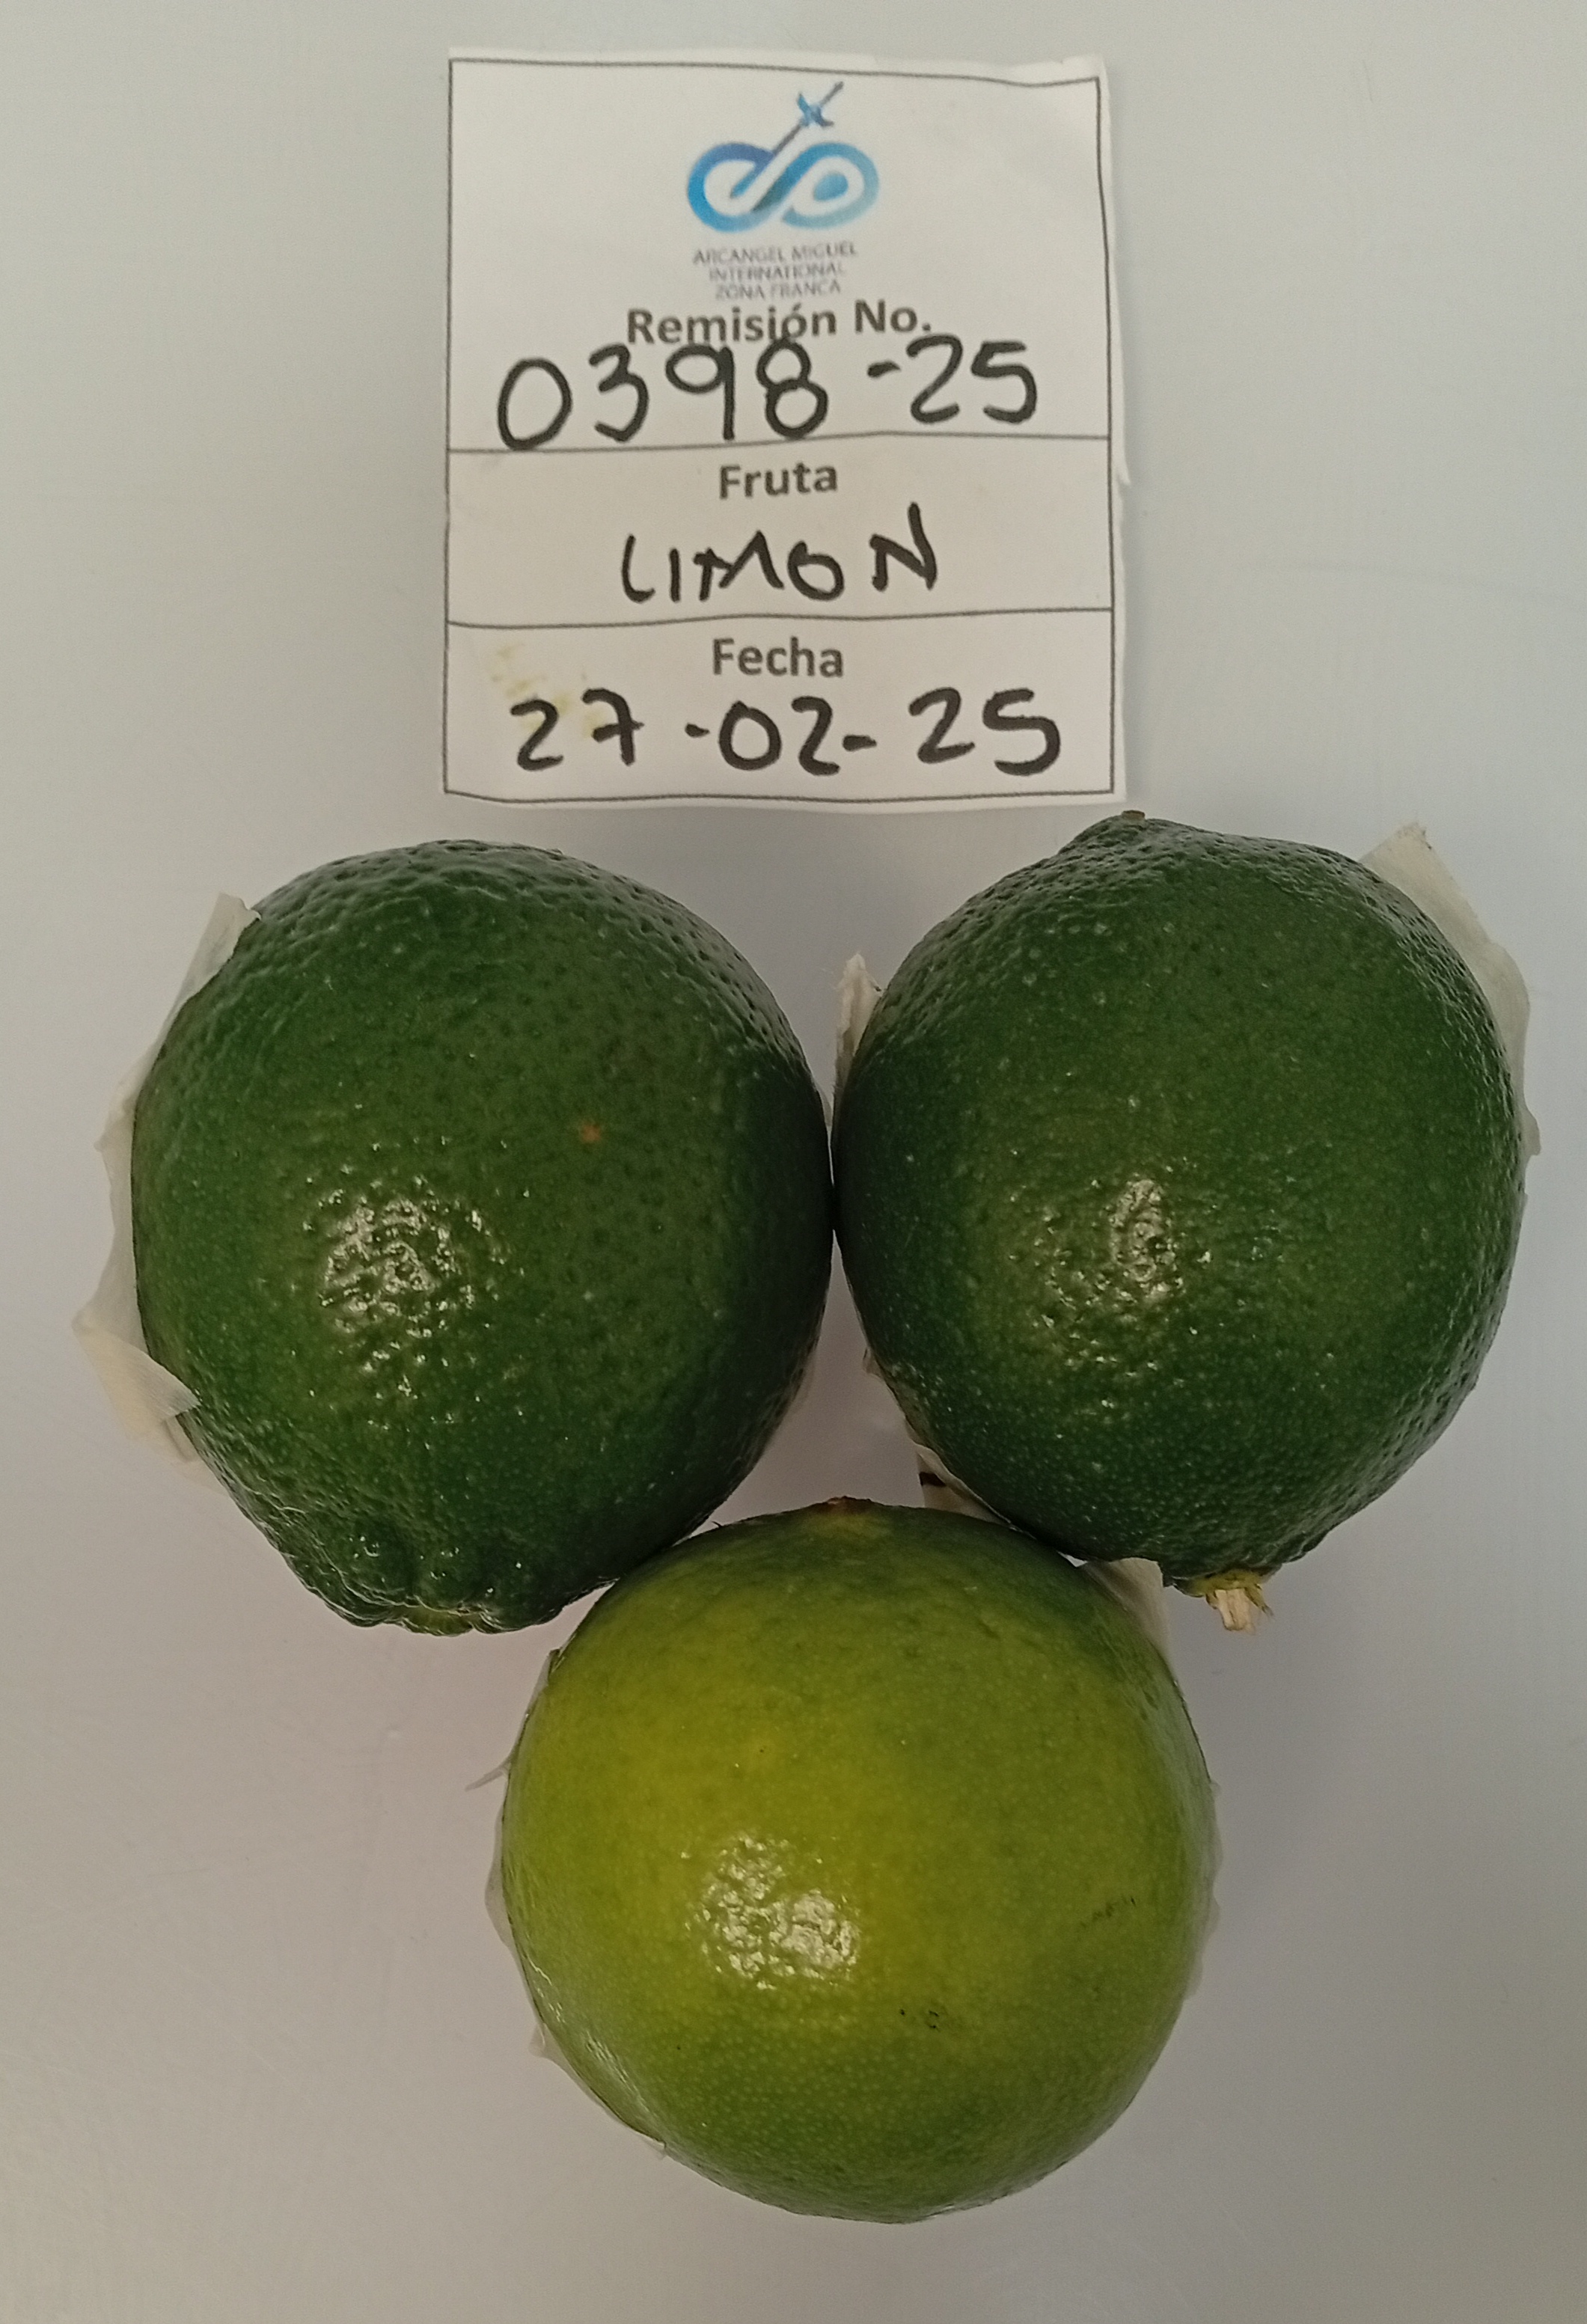 ARCANGEL MIGUEL
INTERNATIONAL
ZONA FRANCA
Remisión No.
0398-25
Fruta
LIMON
Fecha
27-02-25